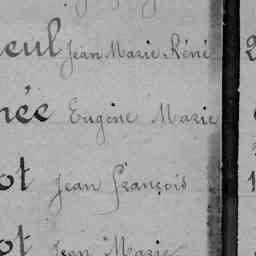 eul Jean Marie Réné 2
née Eugène Marie
ot Jean François 1
ot Jean Marie